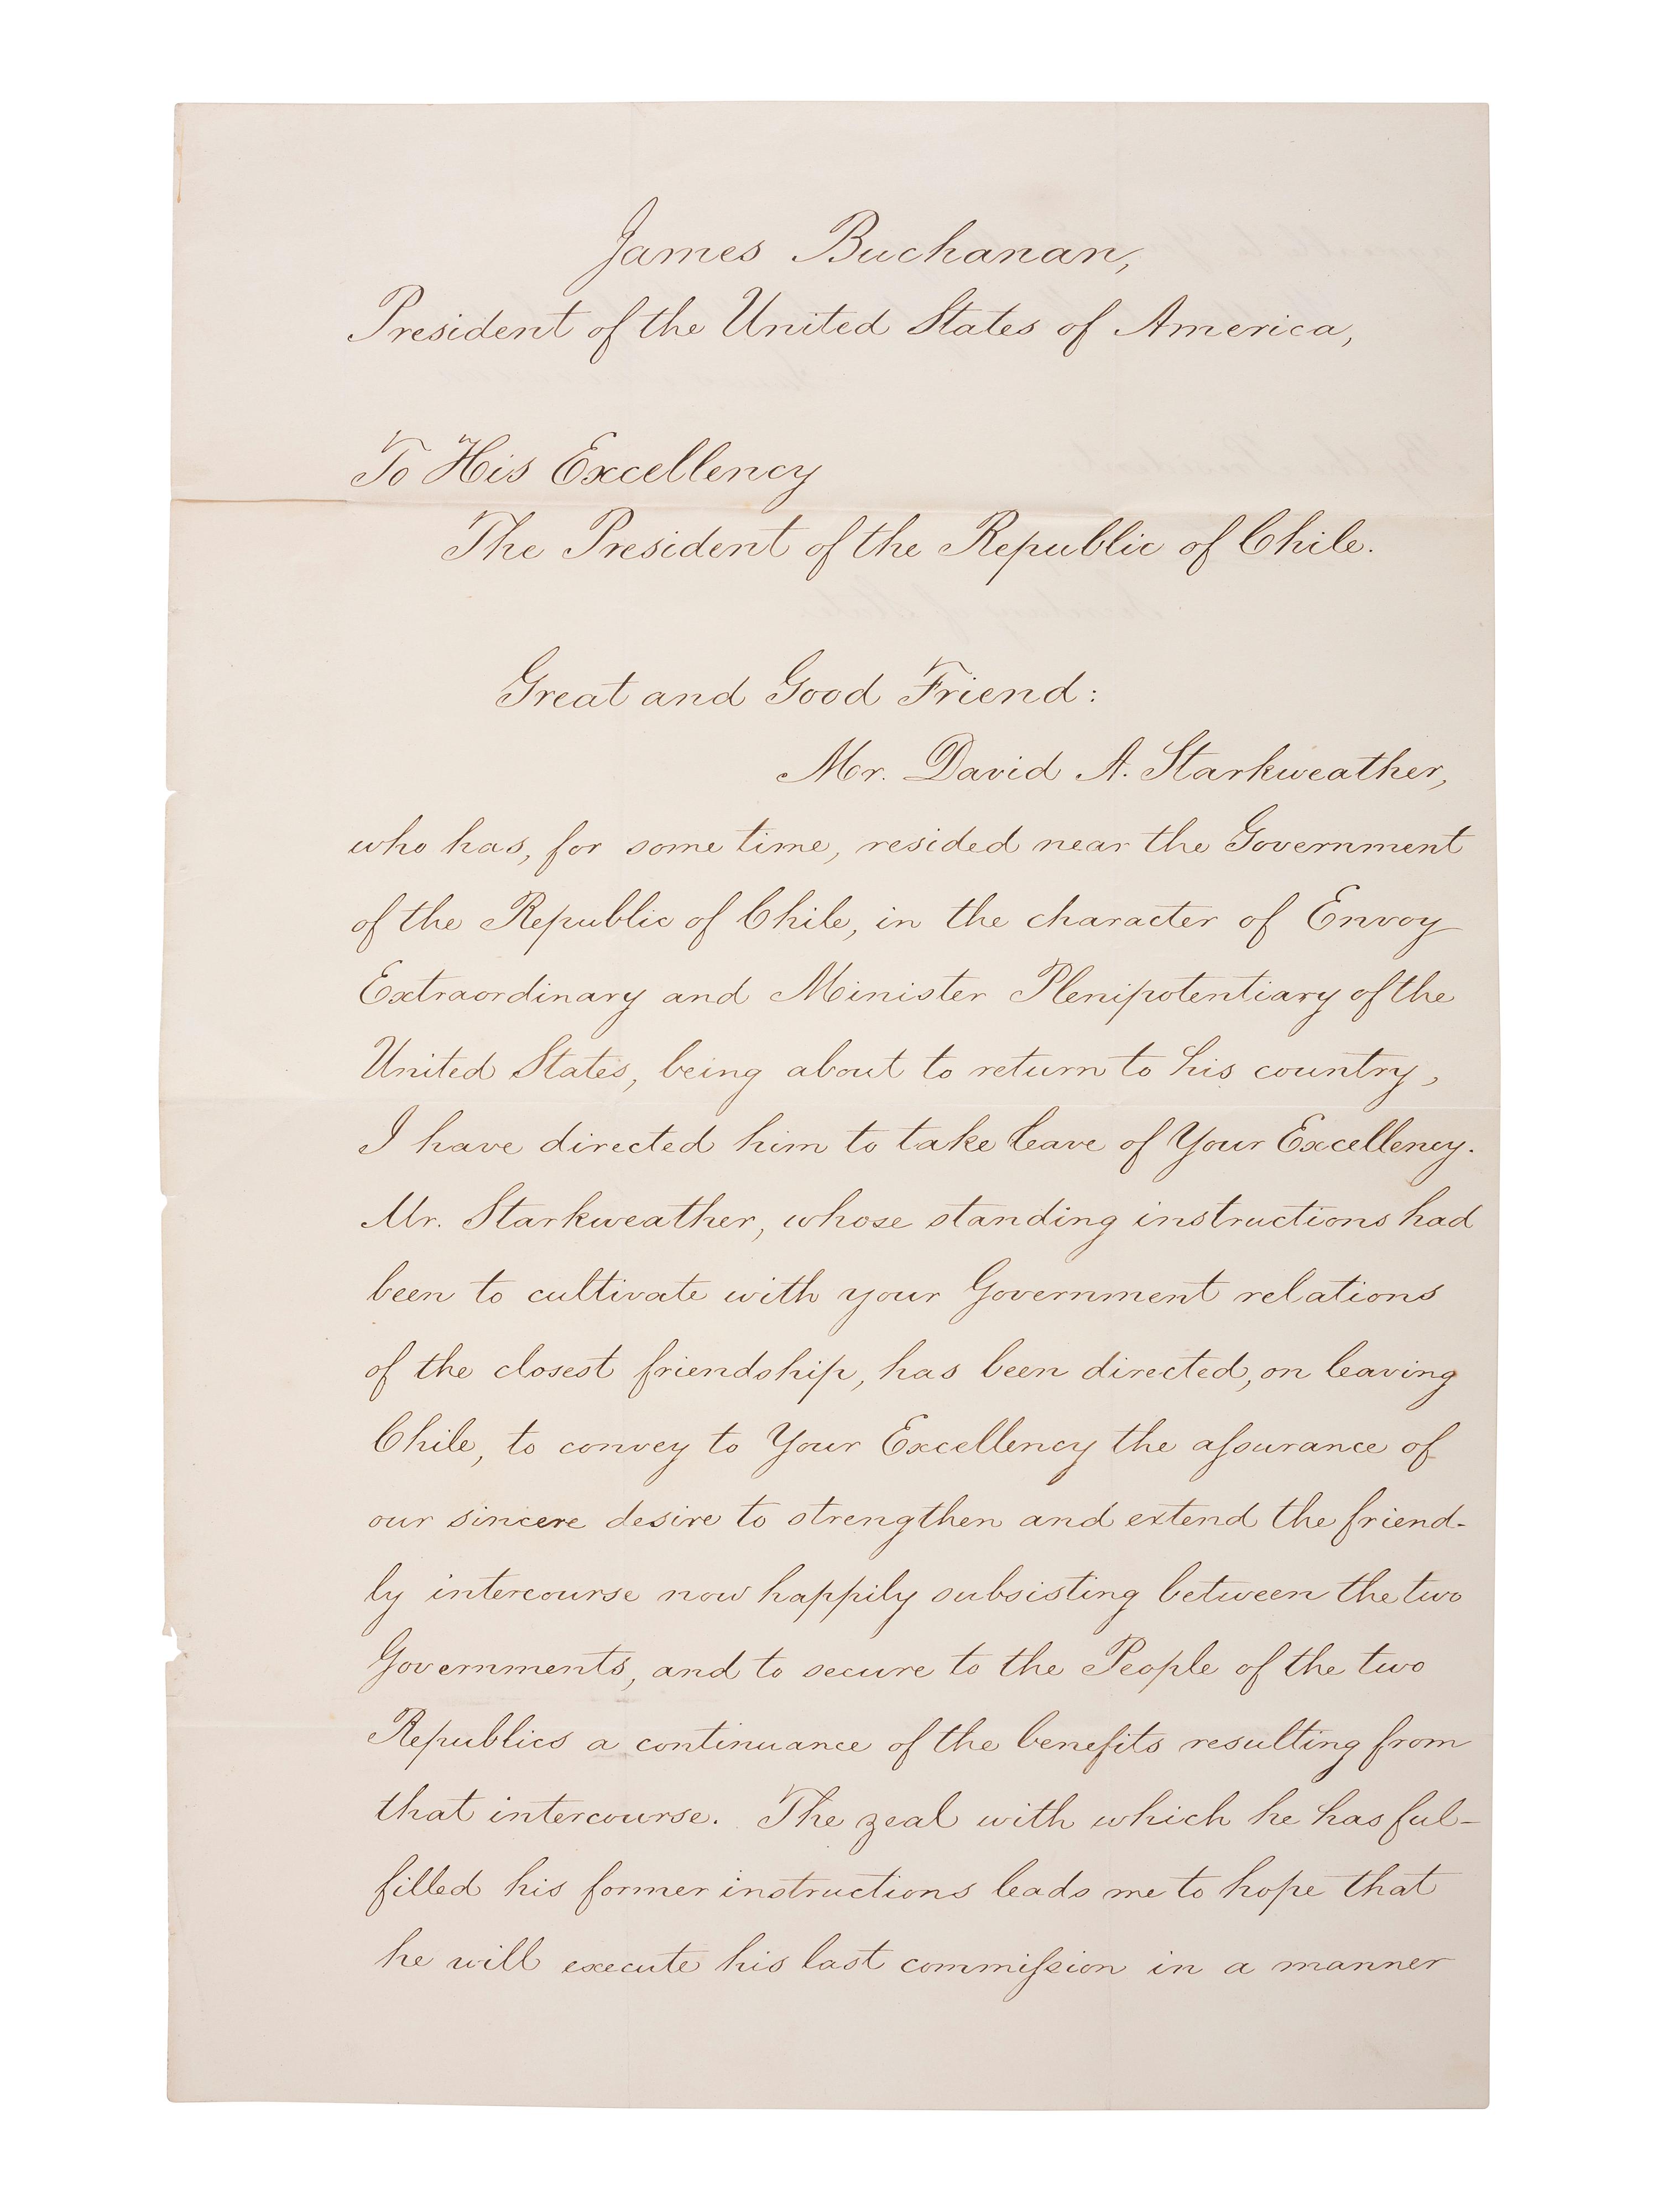 James Buchanan,
President of the United States of America,
To His Excellency
The President of the Republic of Chile.
Great and Good Friend:
Mr. David A. Starkweather,
who has, for some time, resided near the Government
of the Republic of Chile, in the character of Envoy
Extraordinary and Minister Plenipotentiary of the
United States, being about to return to his country,
I have directed him to take leave of Your Excellency.
Mr. Starkweather, whose standing instructions had
been to cultivate with your Government relations
of the closest friendship, has been directed, on leaving
Chile, to convey to Your Excellency the aſsurance of
our sincere desire to strengthen and extend the friend-
ly intercourse now happily subsisting between the two
Governments, and to secure to the People of the two
Republics a continuance of the benefits resulting from
that intercourse. The zeal with which he has ful-
filled his former instructions leads me to hope that
he will execute his last commiſsion in a manner